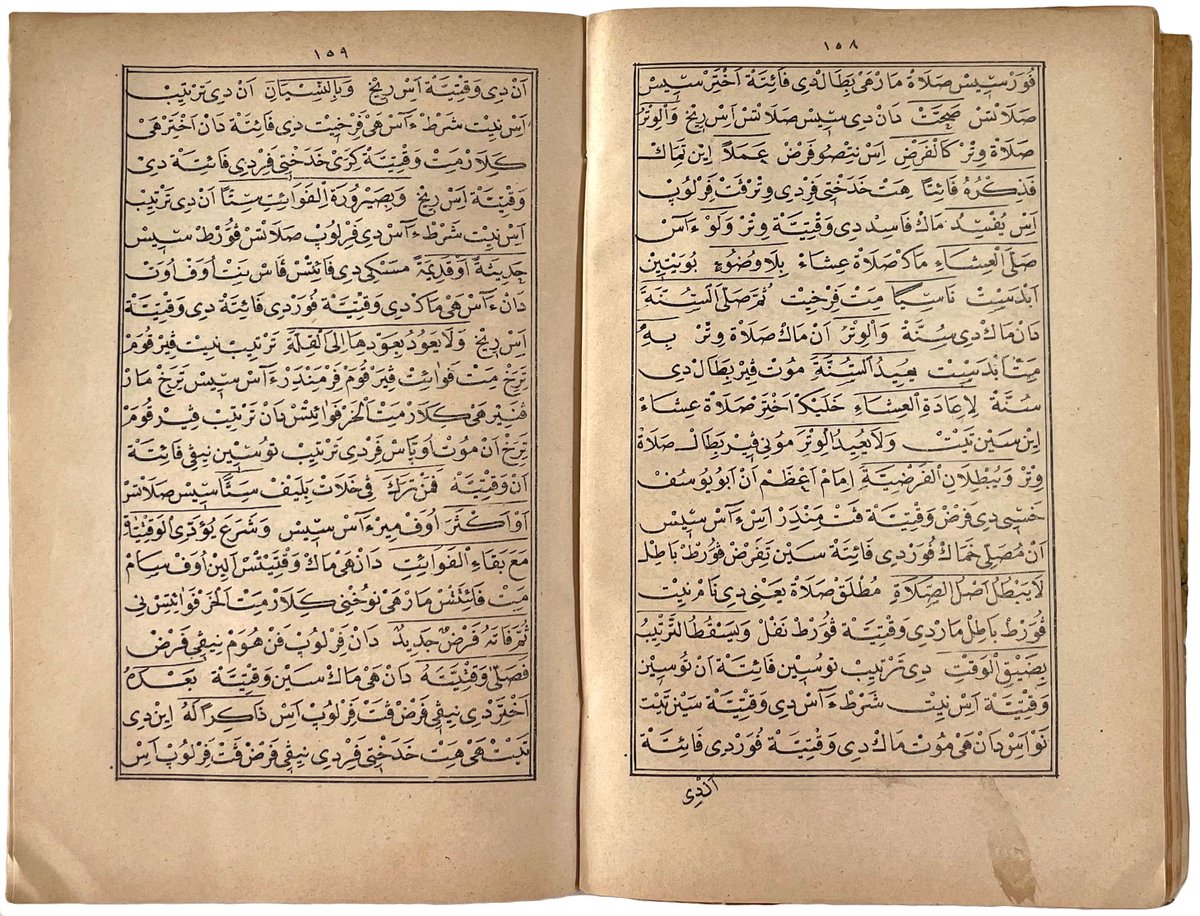 ١٥٨
فُوَرْ سِيسْ صَلَاةْ مَارْ هَىْ بِطَالْ دِى فَائِتَةْ اَخْتَرْ سِيسْ
صَلَاتْسْ صَحَّتْ دَانْ دِى سِيسْ صَلَاتْسْ اَسْ رِيخْ وَالْوِتْرُ
صَلَاةْ وِتْرْ كَالْفَرْضِ اَسْ نِتْصُو فَرْضْ عَمَلاً اِينْ تَمَاكْ
فَذِكْرُهُ فَائِتًا هِتْ خَدَخْتِى فَرْ دِى وِتْرْ فَتْ فَرْلُوبْ
اَسْ يُفْسِدُ مَاكْ فَاسِدْ دِى وَقْتِيَّةْ وِتْرْ وَلَوْ ءَاَسْ
صَلَّى الْعِشَاءَ مَاكْ صَلَاةْ عِشَاءْ بِلَا وُضُوءٍ بُوَيْتِنْ
اَبْدَسْتْ نَاسِيًا مَتْ فَرْخِيتْ ثُمَّ صَلَّى السُّنَّةَ
دَانْ مَاكْ دِى سُنَّةْ وَالْوِتْرُ اَنْ مَاكْ صَلَاةْ وِتْرْ بِهِ
مَتْ اَبْدَسْتْ يُعِيدُ السُّنَّةَ مُوتْ فَيْرْ بِطَالْ دِى
سُنَّةْ لِاِعَادَةِ الْعِشَاءِ خَلَيْكْ اَخْتَرْ صَلَاةْ عِشَاءْ
اِينْ سَيْنْ تَيْتْ وَلَا يُعِيدُ الْوِتْرَ مُونِى فَيْرْ بِطَالْ صَلَاةْ
وِتْرْ وَبُطْلَانِ الْفَرْضِيَّةِ اِمَامْ اَعْظَمْ اَنْ اَبُو يُوسُفْ
خَسَىْ دِى فَرْضْ وَقْتِيَّةْ فَتْ مَنْدَرْ اَسْ ءَاَسْ سِيسْ
اَنْ مُصَلِّى خَمَاكْ فُوَرْ دِى فَائِتَةْ سَيْنْ تَفَرْضْ فُوَرْطْ بَاطِلْ
لَا يُبْطِلُ اَصْلَ الصَّلَاةِ مُطْلَقْ صَلَاةْ يَعْنِى دِى نَامْ نِيتْ
فُوَرْطْ بَاطِلْ مَارْ دِى وَقْتِيَّةْ فُوَرْطْ نَفْلْ وَيَسْقُطُ التَّرْتِيبُ
بِضِيقِ الْوَقْتِ دِى تَرْتِيبْ تُوسِينْ فَائِتَةْ اَنْ تُوسِينْ
وَقْتِيَّةْ اَسْ نِيتْ شَرْطْ ءَاَسْ دِى وَقْتِيَّةْ سَيْنْ تَيْتْ
نَوْ اَسْ دَانْ هَىْ مُوتْ مَاكْ دِى وَقْتِيَّةْ فُوَرْ دِى فَائِتَةْ
اَنْدِى
١٥٩
اَنْ دِى وَقْتِيَّةْ اَسْ رِيخْ وَبِالنِّسْيَانِ اَنْ دِى تَرْتِيبْ
اَسْ نِيتْ شَرْطْ ءَاَسْ هَىْ فَرْخِيتْ دِى فَائِتَةْ دَانْ اَخْتَرْ هَىْ
كَلَارْ مَتْ وَقْتِيَّةْ كِرَىْ خَدَخْتِى فَرْ دِى فَائِتَةْ دِى
وَقْتِيَّةْ اَسْ رِيخْ وَبِصَيْرُورَةِ الْفَوَائِتِ سِتًّا اَنْ دِى تَرْتِيبْ
اَسْ نِيتْ شَرْطْ ءَاَسْ دِى فَرْلُوبْ صَلَاتْسْ فُوَرْطْ سِيسْ
حَدِيثَةً اَوْ قَدِيمَةً مَسْكِى دِى فَائِتْسْ فَاسْ نِتْ اُوفْ اُوَتْ
دَانْ ءَاَسْ هَىْ مَاكْ دِى وَقْتِيَّةْ فُوَرْ دِى فَائِتَةْ دِى وَقْتِيَّةْ
اَسْ رِيخْ وَلَا يَعُودُ بِعَوْدِهَا اِلَى الْقِلَّةِ تَرْتِيبْ نِيتْ فَيْرْ قُومْ
تَرَخْ مَتْ فَوَائِتْ فَيْرْ قُومْ فَرْمِنْدَرْ ءَاَسْ سِيسْ تَرَخْ مَارْ
فَنِيرْ هَىْ كَلَارْ مَتْ الْخَرْ فَوَائِتْسْ دَانْ تَرْتِيبْ فَيْرْ قُومْ
تَرَخْ اَنْ مُوتْ اُوپَاسْ فَرْ دِى تَرْتِيبْ تُوسِينْ نِيڤِى فَائِتَةْ
اَنْ وَقْتِيَّةْ فَمَنْ تَرَكَ ڤِى خَلَاتْ بَلَيْفْ سِتًّا سِيسْ صَلَاتْسْ
اَوْ اَكْثَرَ اُوفْ مِيرْ ءَاَسْ سِيسْ وَشَرَعَ يُؤَدِّى الْوَقْتِيَّةَ
مَعَ بَقَاءِ الْفَوَائِتِ دَانْ هَىْ مَاكْ وَقْتِيَتْسْ اَلِينْ اُوفْ سَامْ
مَتْ فَائِتْسْ مَارْ هَىْ نُوخْنِى كَلَارْ مَتْ الْخَرْ فَوَائِتْسْ نِى
ثُمَّ فَاتَهُ فَرْضٌ جَدِيدٌ دَانْ فَرْلُوبْ فَنْ هُومْ نِيڤِى فَرْضْ
فَصَلَّى وَقْتِيَّتَهُ دَانْ هَىْ مَاكْ سَيْنْ وَقْتِيَّةْ بَعْدَهُ
اَخْتَرْ دِى نِيڤِى فَرْضْ فَتْ فَرْلُوبْ اَسْ ذَاكِرًا لَهُ اِينْ دِى
تَيْتْ هَىْ هِتْ خَدَخْتِى فَرْ دِى نِيڤِى فَرْضْ فَتْ فَرْلُوبْ اَسْ